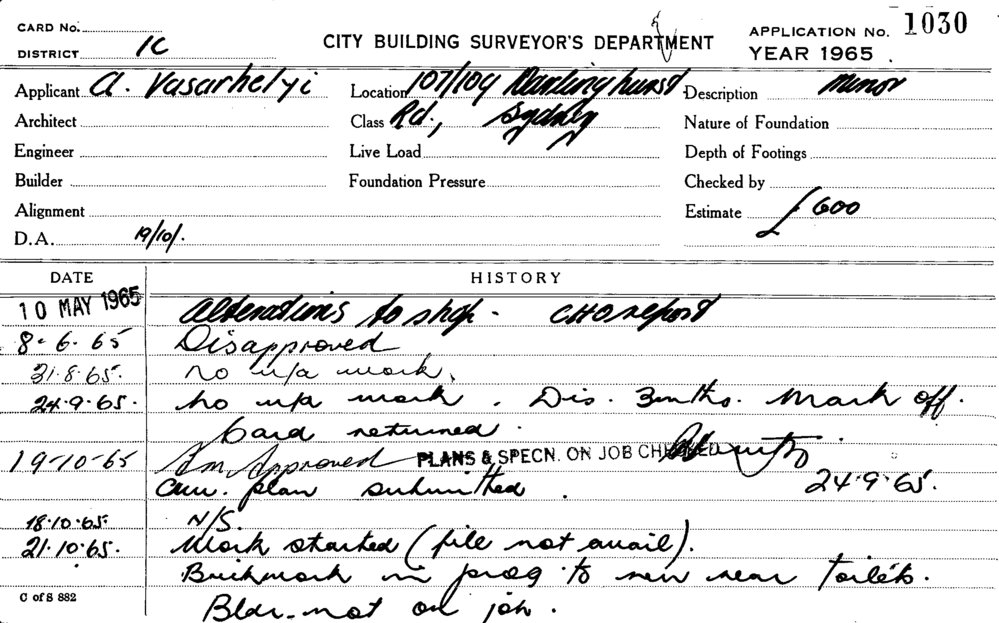 CARD No.
DISTRICT 1C
CITY BUILDING SURVEYOR'S DEPARTMENT
APPLICATION No. 1030
YEAR 1965
Applicant A. Vasarhelyi
Location 107/109 Darlinghurst
Description Minor
Architect
Class Rd., Sydney
Nature of Foundation
Engineer
Live Load
Depth of Footings
Builder
Foundation Pressure
Checked by
Alignment
Estimate £600
D.A. 19/10/.
DATE HISTORY
10 MAY 1965 Alterations to shop - CHO report
8-6-65 Disapproved
31.8.65. No u/a work.
24.9.65. No u/a work. Dis. 3mths. Mark off.
Card returned.
19-10-65 Approved PLANS & SPECN. ON JOB CHECKED
plan submitted. 24.9.65.
18.10.65. N/S.
21.10.65. Work started (file not avail).
Brickwork in prog to new rear toilets.
Bldr. not on job.
C of S 882